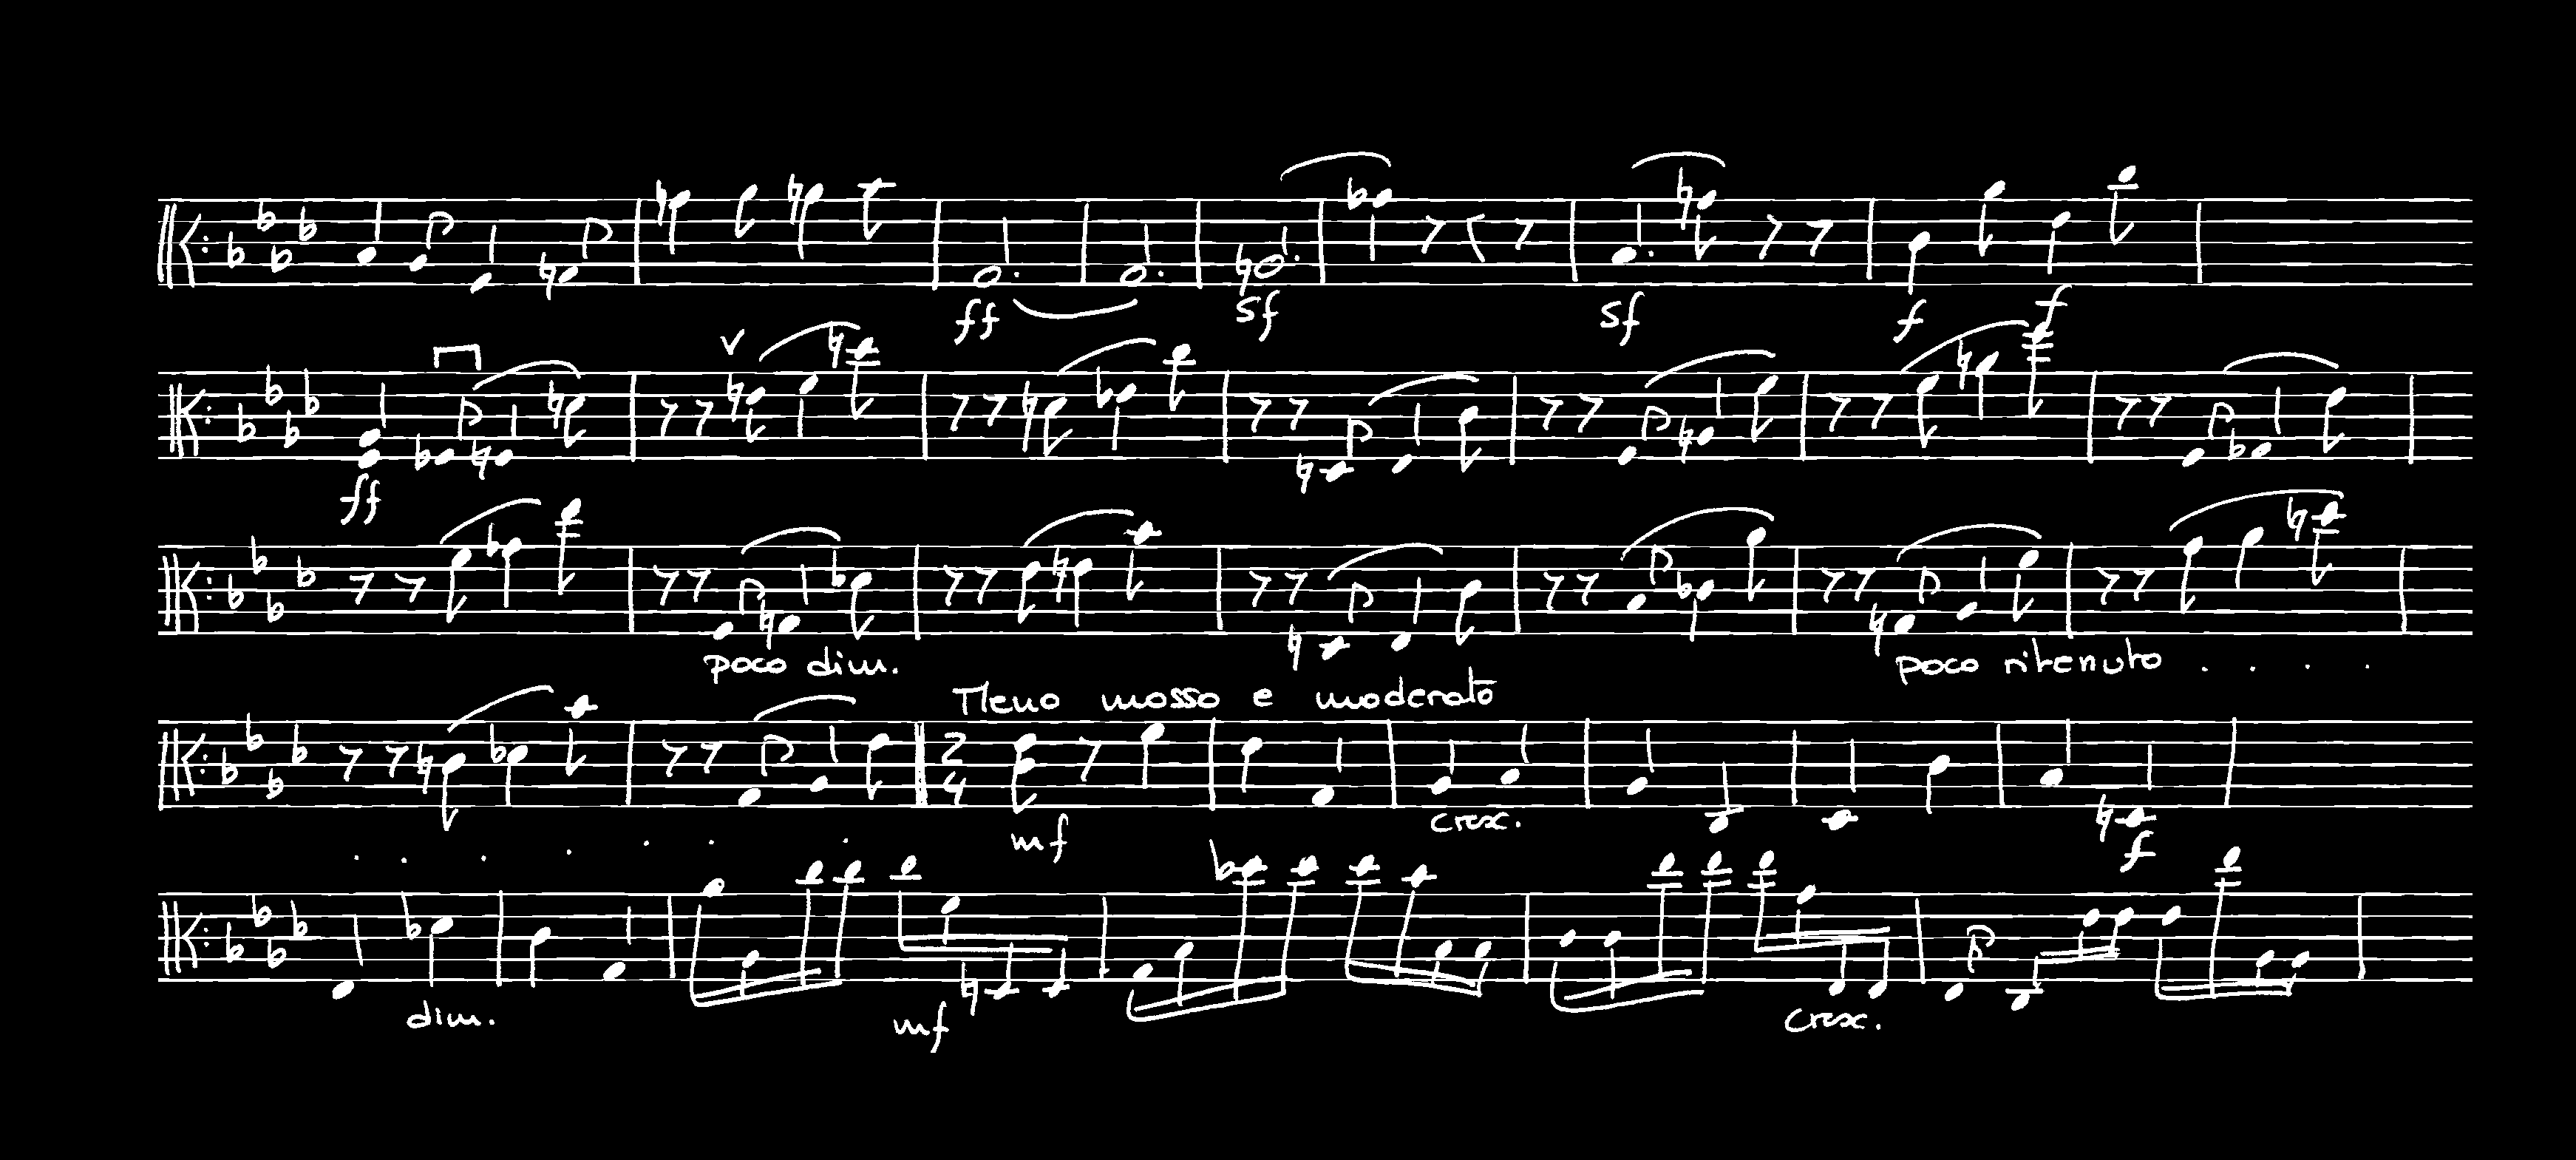 ff sf sf f f
ff
poco dim. poco ritenuto . . . .
Meno mosso e moderato
2 4 mf cresc. f
dim. mf cresc.